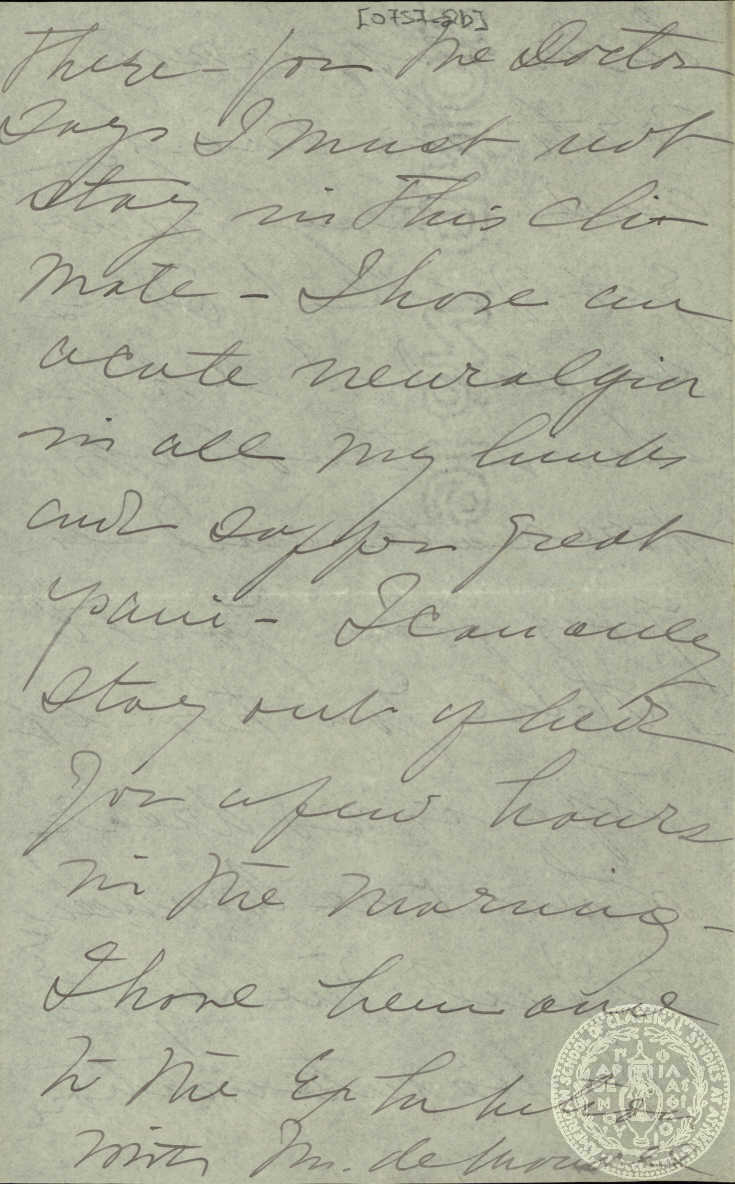 [0757-2b]
There - for the Doctor
Says I must not
stay in this cli-
mate - I have an
acute neuralgia
in all my limbs
and suffer great
pain - I can only
stay out of bed
for a few hours
in the morning -
I have been once
to the Exhibition
with M. de